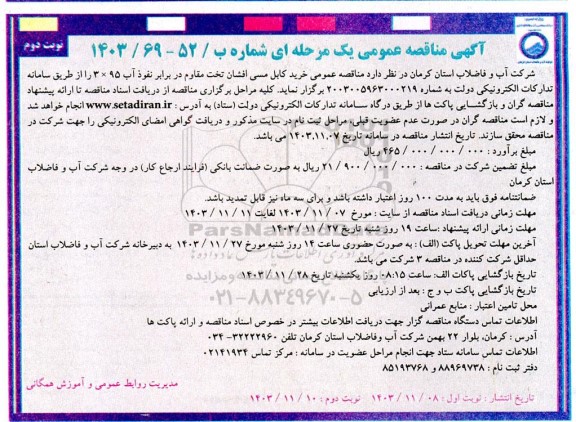 نوبت دوم
آگهی مناقصه عمومی یک مرحله ای شماره ب / ۵۲ - ۶۹ / ۱۴۰۳
شرکت آب و فاضلاب استان کرمان در نظر دارد مناقصه عمومی خرید کابل مسی افشان تخت مقاوم در برابر نفوذ آب ۹۵ × ۳ را از طریق سامانه
تدارکات الکترونیکی دولت به شماره ۲۰۰۳۰۰۵۹۶۳۰۰۰۲۱۹ برگزار نماید. کلیه مراحل برگزاری مناقصه از دریافت اسناد مناقصه تا ارائه پیشنهاد
مناقصه گران و بازگشایی پاکت ها از طریق درگاه سامانه تدارکات الکترونیکی دولت (ستاد) به آدرس : www.setadiran.ir انجام خواهد شد
و لازم است مناقصه گران در صورت عدم عضویت قبلی، مراحل ثبت نام در سایت مذکور و دریافت گواهی امضای الکترونیکی را جهت شرکت در
مناقصه محقق سازند. تاریخ انتشار مناقصه در سامانه تاریخ ۱۴۰۳.۱۱.۰۷ می باشد.
مبلغ برآورد : ۰۰۰ / ۰۰۰ / ۰۰۰ / ۴۶۵ ریال
مبلغ تضمین شرکت در مناقصه : ۰۰۰ / ۰۰۰ / ۹۰۰ / ۲۱ ریال به صورت ضمانت بانکی (فرایند ارجاع کار) در وجه شرکت آب و فاضلاب
استان کرمان
ضمانتنامه فوق باید به مدت ۱۰۰ روز اعتبار داشته باشد و برای سه ماه نیز قابل تمدید باشد.
مهلت زمانی دریافت اسناد مناقصه از سایت : مورخ ۰۷ / ۱۱ / ۱۴۰۳ لغایت ۱۱ / ۱۱ / ۱۴۰۳
مهلت زمانی ارائه پیشنهاد :ساعت ۱۹ روز شنبه تاریخ ۲۷ / ۱۱ / ۱۴۰۳
آخرین مهلت تحویل پاکت (الف) : به صورت حضوری ساعت ۱۴ روز شنبه مورخ ۲۷ / ۱۱ / ۱۴۰۳ به دبیرخانه شرکت آب و فاضلاب استان
حداقل شرکت کننده در مناقصه ۳ شرکت می باشد.
تاریخ بازگشایی پاکات الف: ساعت ۰۸:۱۵ روز یکشنبه تاریخ ۲۸ / ۱۱ / ۱۴۰۳
تاریخ بازگشایی پاکت ب و ج : بعد از ارزیابی
محل تامین اعتبار : منابع عمرانی
اطلاعات تماس دستگاه مناقصه گزار جهت دریافت اطلاعات بیشتر در خصوص اسناد مناقصه و ارائه پاکت ها
آدرس : کرمان، بلوار ۲۲ بهمن شرکت آب وفاضلاب استان کرمان تلفن ۳۲۲۲۲۹۶۰-۰۳۴
اطلاعات تماس سامانه ستاد جهت انجام مراحل عضویت در سامانه : مرکز تماس ۰۲۱۴۱۹۳۴
دفتر ثبت نام : ۸۸۹۶۹۷۳۸ و ۸۵۱۹۳۷۶۸
مدیریت روابط عمومی و آموزش همگانی
تاریخ انتشار : نوبت اول : ۰۸ / ۱۱ / ۱۴۰۳ نوبت دوم : ۱۰ / ۱۱ / ۱۴۰۳
ParsNamadData
۰۲۱-۸۸۳۴۹۶۷۰-۵